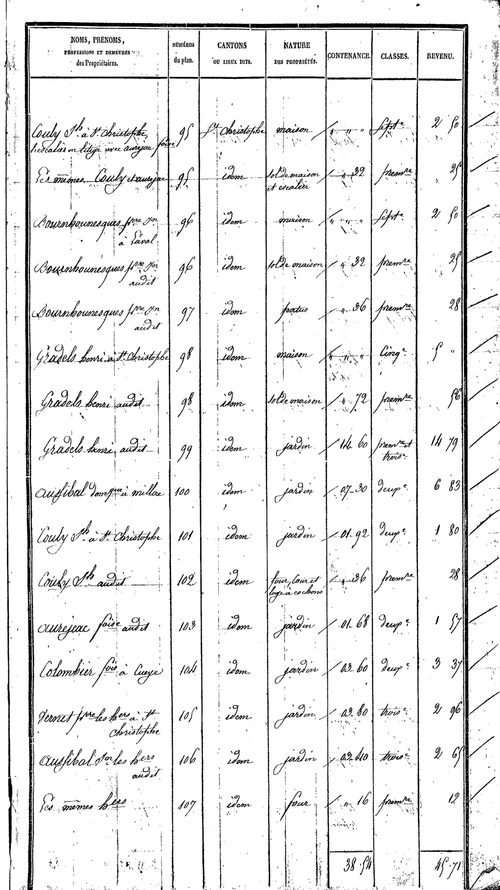 NOMS, PRÉNOMS, PROFESSIONS ET DEMEURES des Propriétaires. NUMÉROS du plan. CANTONS OU LIEUX DITS. NATURE DES PROPRIÉTÉS. CONTENANCE. CLASSES. REVENU.
Couly Jh. à St. Christophe, 95 St Christophe maison " " " Sept.e 2 50
l'escalier en litige avec aurejac foise
Les mêmes Couly et aurejac 95 idem sol de maison et escalier " " 32 prem.re 25
Bournhounesques p.re jn 96 idem maison " " " Sept.e 2 50
à Laval
Bournhounesques p.re jn 96 idem sol de maison " " 32 prem.re 25
audit
Bournhounesques p.re jn 97 idem patus " " 36 prem.re 28
audit
Gradels henri à St. Christophe 98 idem maison " " " Cinq.e 5 "
Gradels henri audit 98 idem sol de maison " 72 prem.re 56
Gradels henri audit 99 idem jardin 14 60 prem.re et trois.e 14 79
aussibal à millac 100 idem jardin 07 30 deux.e 6 83
Couly Jh. à St. Christophe 101 idem jardin 01 92 deux.e 1 80
Couly Jh. audit 102 idem four, cour et loge à cochons " 36 prem.re 28
aurejac foise audit 103 idem jardin 01 68 deux.e 1 57
Colombier fois à 104 idem jardin 03 60 deux.e 3 37
Vernet p.rre les h.ers à St 105 idem jardin 03 80 trois.e 2 96
Christophe
aussibal les h.ers 106 idem jardin 03 40 trois.e 2 65
audit
Les mêmes h.ers 107 idem four " " 16 prem.re 12
38 54 45 71